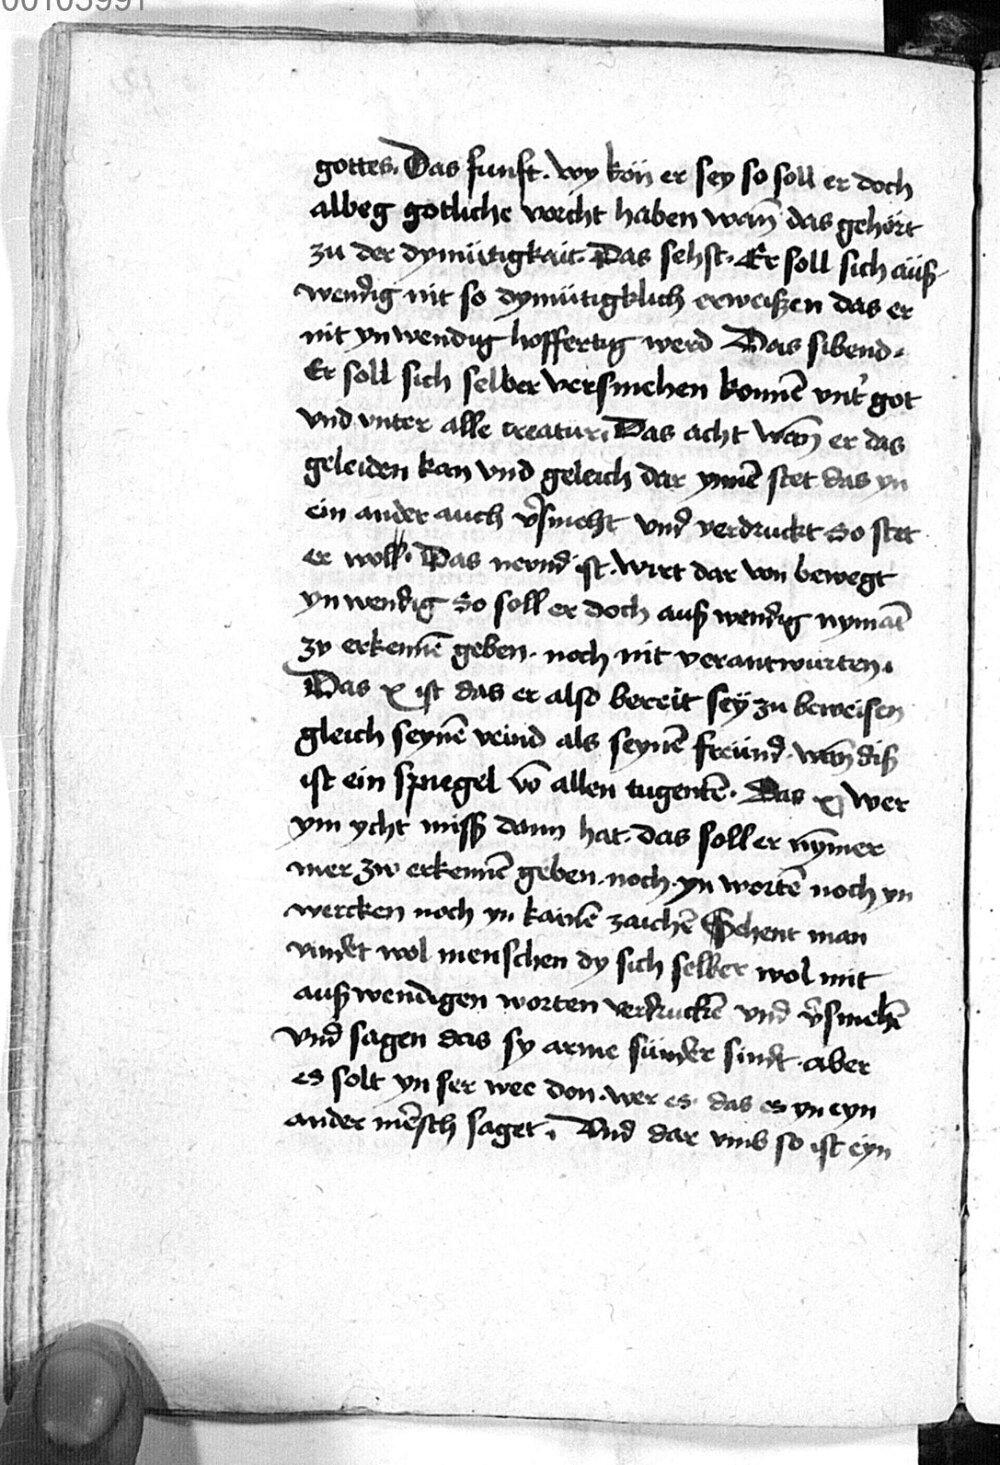 00103991
gottes. Das funft. wy kön er sey so soll er doch
albeg gotliche vorcht haben wan̄ das gehört
zu der dymütigkait. Das sehst. Er soll sich aüß
wend̾ig nit so dymütigklich erweißen das er
nit ynwendig hoffertig werd Das sibend.
Er soll sich selber versmehen konnē vnt̾ got
vnd vnter alle creatur. Das acht wan̄ er das
geleiden kan vnd geleich dar ynnē stet das yn
ein ander auch v̾smeht vnd verdruckt So stet
er woll. Das neund ist. wirt dar von bewegt
ynwendig So soll er doch außwendig nymāt
zv erkennē geben. noch nit verantwurten.
Das x ist das er also bereit seÿ zu beweisen
gleich seynē veind als seynē freünd. wan̄ diß
ist ein spiegel vō allen tugentē. Das xj wer
ym ycht miss dann hat. das soll er nȳmer
mer zw erkennē geben. noch. yn wortē noch yn
wercken noch yn kainē zaichē Sehent man
vindet wol menschen dy sich selber wol mit
außwendigen worten verdruckē vnd v̾smehē
vnd sagen das sy arme sünder sindt. aber
es solt yn ser wee don. wer es. das es yn eyn
ander mēsch saget. Vnd dar vmb so ist eyn